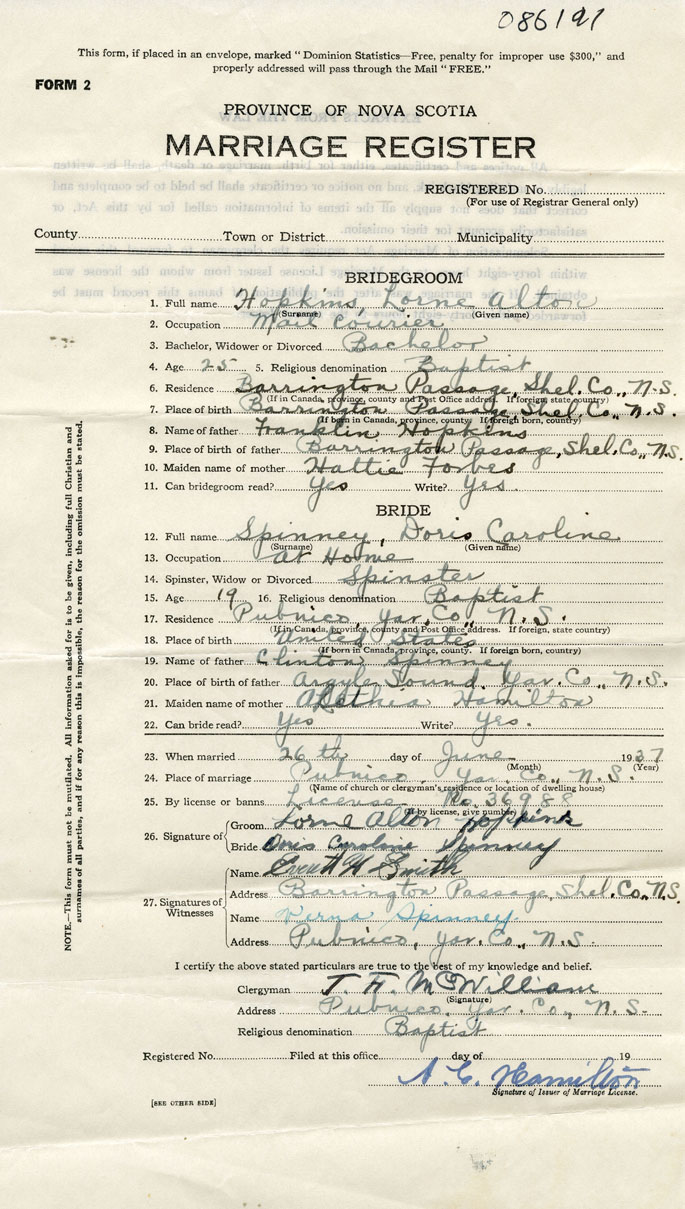 086191
This form, if placed in an envelope, marked "Dominion Statistics—Free, penalty for improper use $300," and
properly addressed will pass through the Mail "FREE."
FORM 2
PROVINCE OF NOVA SCOTIA
MARRIAGE REGISTER
REGISTERED No.
(For use of Registrar General only)
County Town or District Municipality
BRIDEGROOM
1. Full name Hopkins, Lorne Alton
(Surname) (Given name)
2. Occupation Mail Courier
3. Bachelor, Widower or Divorced Bachelor
4. Age 25 5. Religious denomination Baptist
6. Residence Barrington Passage, Shel. Co., N.S.
(If in Canada, province, county and Post Office address. If foreign, state country)
7. Place of birth Barrington Passage, Shel. Co., N.S.
(If born in Canada, province, county. If foreign born, country)
8. Name of father Franklin Hopkins
9. Place of birth of father Barrington Passage, Shel. Co., N.S.
10. Maiden name of mother Hattie Forbes
11. Can bridegroom read? Yes Write? Yes.
BRIDE
12. Full name Spinney, Doris Caroline
(Surname) (Given name)
13. Occupation At Home
14. Spinster, Widow or Divorced Spinster
15. Age 19 16. Religious denomination Baptist
17. Residence Pubnico, Yar. Co., N.S.
(If in Canada, province, county and Post Office address. If foreign, state country)
18. Place of birth United States
(If born in Canada, province, county. If foreign born, country)
19. Name of father Clinton Spinney
20. Place of birth of father Argyle Sound, Yar. Co., N.S.
21. Maiden name of mother Hamilton
22. Can bride read? Yes Write? Yes.
23. When married 26th day of June 1937
(Month) (Year)
24. Place of marriage Pubnico, Yar. Co., N.S.
(Name of church or clergyman's residence or location of dwelling house)
25. By license or banns License No. 36988
(If by license, give number)
26. Signature of Groom Lorne Alton Hopkins
Bride Doris Caroline Spinney
27. Signatures of Witnesses
Name Smith
Address Barrington Passage, Shel. Co., N.S.
Name Verna Spinney
Address Pubnico, Yar. Co., N.S.
I certify the above stated particulars are true to the best of my knowledge and belief.
Clergyman T. F. McWilliam
(Signature)
Address Pubnico, Yar. Co., N.S.
Religious denomination Baptist
Registered No. Filed at this office day of 19
A. C. Hamilton
Signature of Issuer of Marriage License.
[SEE OTHER SIDE]
NOTE.—This form must not be mutilated. All information asked for is to be given, including full Christian and
surnames of all parties, and if for any reason this is impossible, the reason for the omission must be stated.